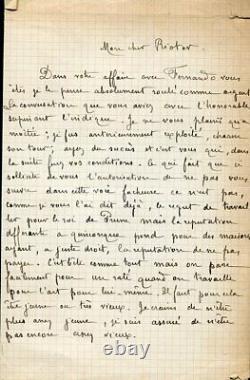 Mon cher Riotor.
Dans votre affaire avec Fernando vous
je pense absolument roulé comme argent
la conversation que vous aviez avec l'honorable
Je ne vous plains qu'à
moitié ; je fus antérieurement exploité, chacun
son tour, ayez du succès et c'est vous qui, dans
la suite ferez vos conditions. le qui fait que
l'autorisation de ne pas vous
suivre dans cette voie facheuse ce n'est pas
comme je vous l'ai dit déjà, le regret de travail
ler pour le roi de Prusse mais la réputation
à quiconque pond pour des maisons
ayant, à juste droit, la réputation de ne pas
payer. C'est bête comme tout mais on passe
facilement pour un raté quand on travaille
pour l'art pour lui même. Il faut pour cela
être jeune ou très vieux. Je crains de n'être
plus assez jeune, je suis assuré de n'être
pas encore assez vieux.
ebay